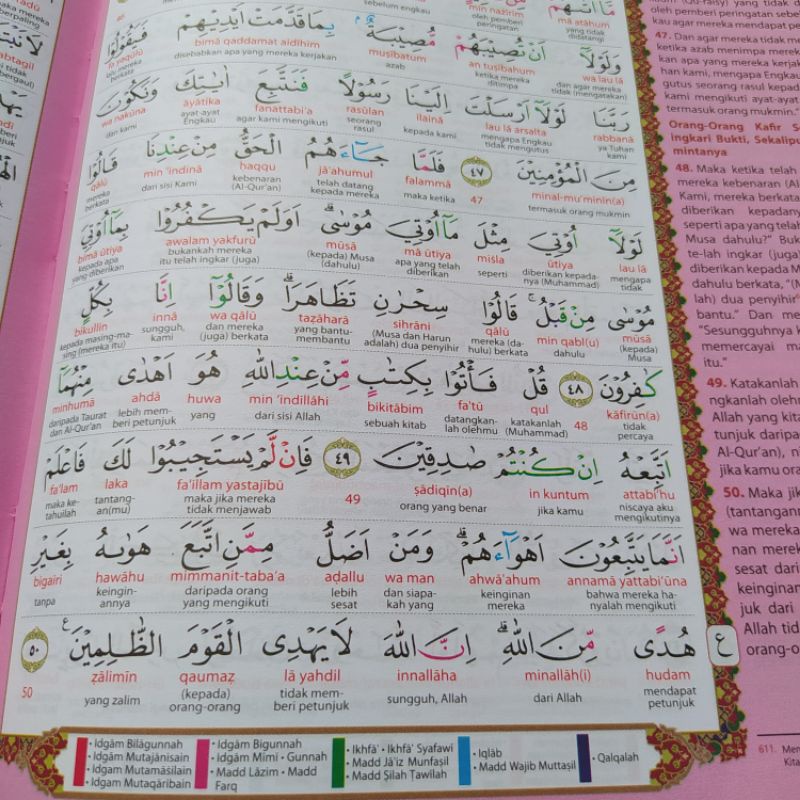 مَّآ اَتٰىهُمْ
mā atāhum
min nażīrim
tidak yang didatangi
oleh pemberi peringatan
sebelum engkau
وَلَوْلَآ اَنْ تُصِيْبَهُمْ مُّصِيْبَةٌ ۢبِمَا قَدَّمَتْ اَيْدِيْهِمْ فَيَقُوْلُوْا
wa lau lā an tuṣībahum muṣībatum bimā qaddamat aidīhim fa yaqūlū
dan agar mereka tidak (mengatakan) ketika mereka ditimpa azab disebabkan apa yang mereka kerjakan lalu mereka berkata
رَبَّنَا لَوْلَآ اَرْسَلْتَ اِلَيْنَا رَسُوْلًا فَنَتَّبِعَ اٰيٰتِكَ وَنَكُوْنَ
rabbanā lau lā arsalta ilainā rasūlan fanattabi'a āyātika wa nakūna
ya Tuhan kami mengapa Engkau tidak mengutus kepada kami seorang rasul agar kami mengikuti ayat-ayat Engkau dan kami
مِنَ الْمُؤْمِنِيْنَ ٤٧ فَلَمَّا جَاۤءَهُمُ الْحَقُّ مِنْ عِنْدِنَا قَالُوْا
minal-mu'minīn(a) 47 falammā jā'ahumul ḥaqqu min 'indinā qālū
termasuk orang mukmin maka ketika telah datang kepada mereka kebenaran (Al-Qur'an) dari sisi Kami mereka berkata
لَوْلَآ اُوْتِيَ مِثْلَ مَآ اُوْتِيَ مُوْسٰىۗ اَوَلَمْ يَكْفُرُوْا بِمَآ اُوْتِيَ
lau lā ūtiya miṡla mā ūtiya mūsā awalam yakfurū bimā ūtiya
mengapa tidak diberikan kepadanya (Muhammad) seperti apa yang telah diberikan (kepada) Musa (dahulu) bukankah mereka itu telah ingkar (juga) kepada apa yang diberikan
مُوْسٰى مِنْ قَبْلُۚ قَالُوْا سِحْرٰنِ تَظَاهَرَاۗ وَقَالُوْٓا اِنَّا بِكُلٍّ
mūsā min qabl(u) qālū siḥrāni taẓāharā wa qālū innā bikullin
(kepada) Musa dahulu mereka (dahulu) berkata (Musa dan Harun adalah) dua penyihir yang bantu-membantu dan mereka (juga) berkata sungguh, kami kepada masing-masing (mereka itu)
كٰفِرُوْنَ ٤٨ قُلْ فَأْتُوْا بِكِتٰبٍ مِّنْ عِنْدِ اللّٰهِ هُوَ اَهْدٰى مِنْهُمَآ
kāfirūn(a) 48 qul fa'tū bikitābim min 'indillāhi huwa ahdā minhumā
tidak percaya katakanlah (Muhammad) datangkanlah olehmu sebuah kitab dari sisi Allah yang lebih memberi petunjuk daripada Taurat dan Al-Qur'an
اَتَّبِعْهُ اِنْ كُنْتُمْ صٰدِقِيْنَ ٤٩ فَاِنْ لَّمْ يَسْتَجِيْبُوْا لَكَ فَاعْلَمْ
attabi'hu in kuntum ṣādiqīn(a) 49 fa'illam yastajībū laka fa'lam
niscaya aku mengikutinya jika kamu orang yang benar maka jika mereka tidak menjawab tantangan(mu) maka ketahuilah
اَنَّمَا يَتَّبِعُوْنَ اَهْوَاۤءَهُمْۗ وَمَنْ اَضَلُّ مِمَّنِ اتَّبَعَ هَوٰىهُ بِغَيْرِ
annamā yattabi'ūna ahwā'ahum wa man aḍallu mimmanit-taba'a hawāhu bigairi
bahwa mereka hanyalah mengikuti keinginan mereka dan siapakah yang lebih sesat daripada orang yang mengikuti keinginannya tanpa
هُدًى مِّنَ اللّٰهِۗ اِنَّ اللّٰهَ لَا يَهْدِى الْقَوْمَ الظّٰلِمِيْنَ ࣖ ٥٠
hudam minallāh(i) innallāha lā yahdil qaumaẓ ẓālimīn 50
mendapat petunjuk dari Allah sungguh, Allah tidak memberi petunjuk (kepada) orang-orang yang zalim
ع
• Idgām Bilāgunnah
• Idgām Mutajānisain
• Idgam Mutamāṡilain
• Idgam Mutaqāribain
• Idgām Bigunnah
• Idgām Mimī • Gunnah
• Madd Lāzim • Madd Farq
• Ikhfā' • Ikhfā' Syafawi
• Madd Jā'iz Munfaṣil
• Madd Ṣilah Ṭawīlah
• Iqlāb
• Madd Wajib Muttaṣil
• Qalqalah
oleh pemberi peringatan sebe
kau agar mereka mendapat
47. Dan agar mereka tidak me
ketika azab menimpa mereka
kan apa yang mereka kerjak
han kami, mengapa Engkau
gutus seorang rasul kepad
kami mengikuti ayat-ayat
termasuk orang mukmin."
Orang-Orang Kafir S
Ingkari Bukti, Sekalipu
mintanya
48. Maka ketika telah
mereka kebenaran (Al-
Kami, mereka berkata
diberikan kepadany
seperti apa yang telah
Musa dahulu?" Buk
te-lah ingkar (juga)
diberikan kepada M
dahulu berkata, "(M
lah) dua penyihir
bantu." Dan me
"Sesungguhnya k
memercayai ma
itu."
49. Katakanlah
ngkanlah olehm
Allah yang kita
tunjuk daripa
Al-Qur'an), ni
jika kamu ora
50. Maka jik
(tantanganm
wa mereka
nan merek
sesat dari
keinginan
juk dari
Allah tid
orang-o
611. Men
Kita